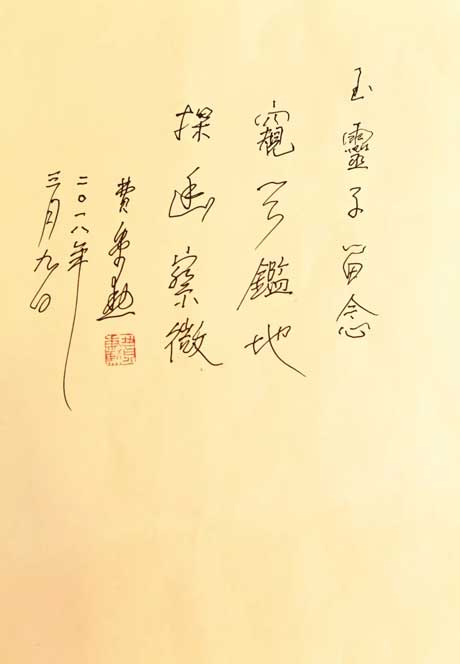 玉靈子留念
窺天鑑地
探幽察微
費秉勳
二〇一八年
三月九日